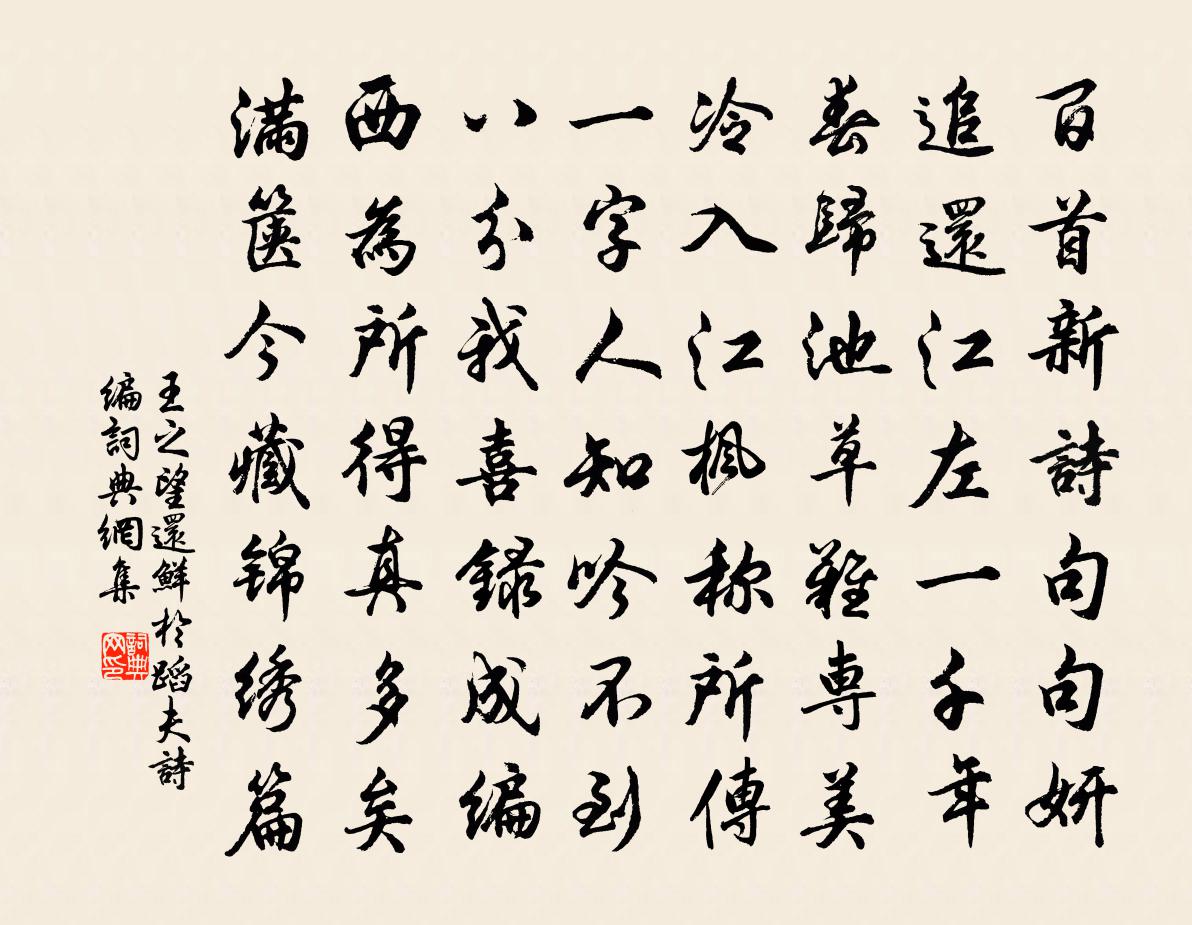 百首新詩句句妍
追還江左一千年
春歸池草難專美
冷入江楓称所傳
一字人知吟不到
八分我喜録成编
西為所得真多矣
滿篋今藏锦绣篇
王之望還鮮於蹈夫詩
编詞典網集
詞典网印